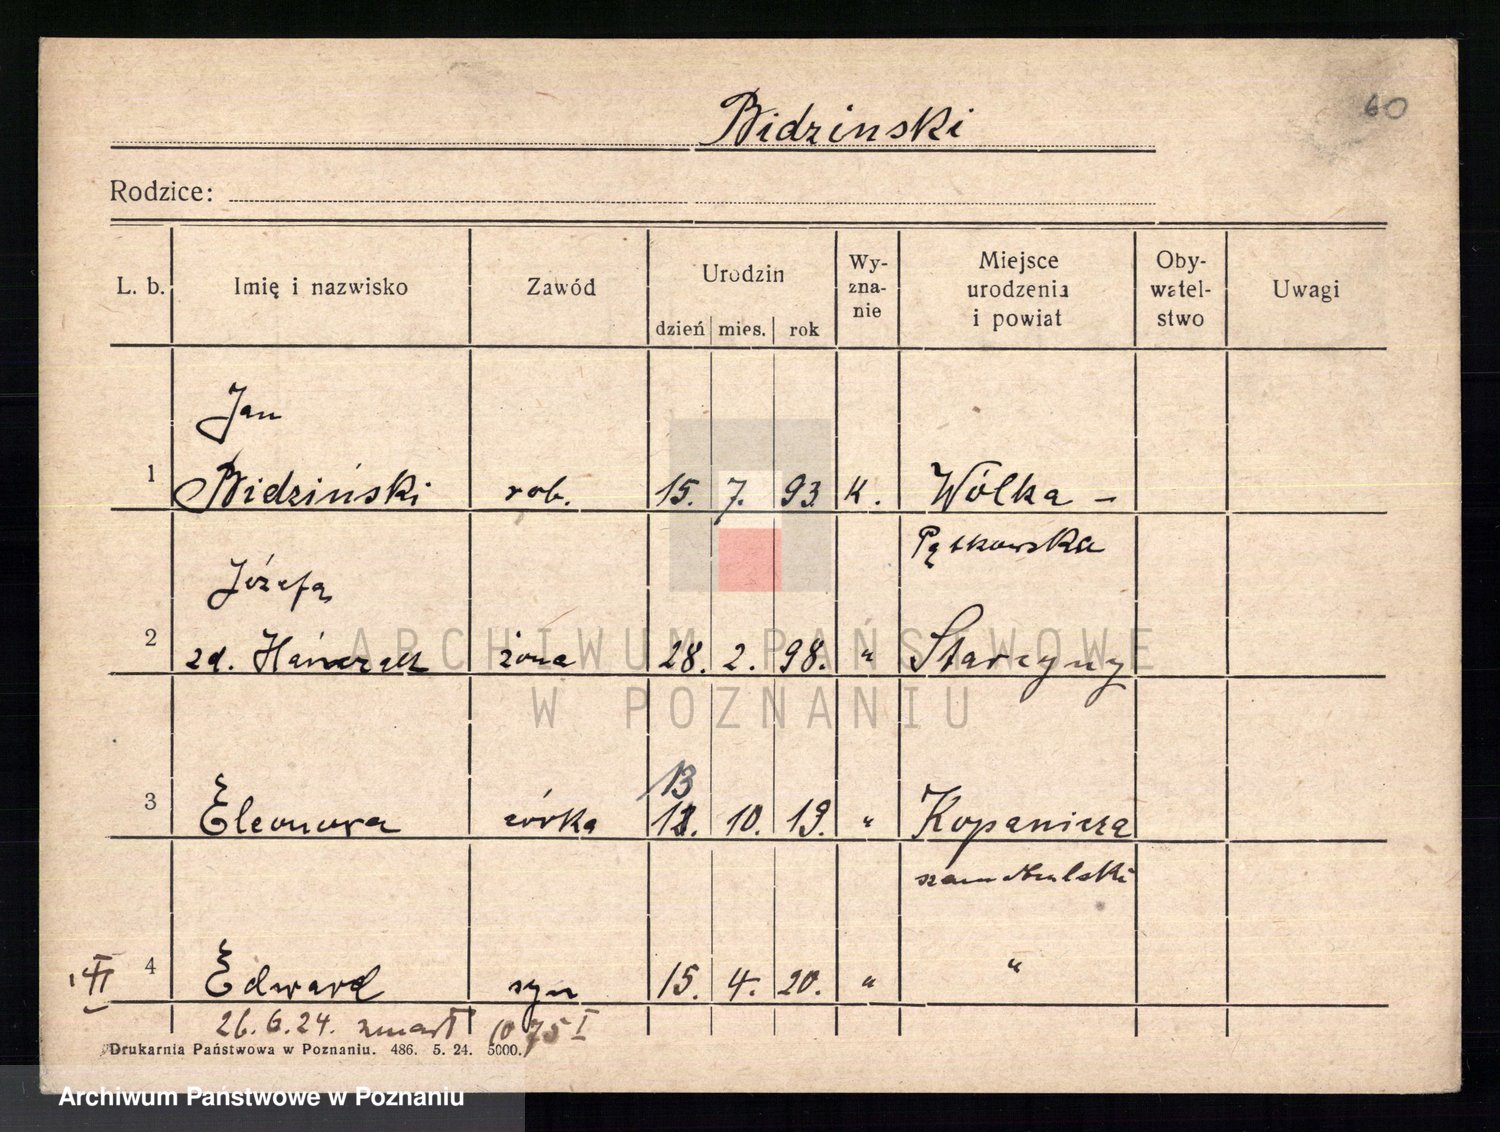 Bidzinski
60
Rodzice:
L. b. Imię i nazwisko Zawód Urodzin dzień mies. rok Wy-zna-nie Miejsce urodzenia i powiat Oby-watel-stwo Uwagi
Jan
1 Bidziński rob. 15. 7. 93 K. Wólka -
Pątkowska
Józefa
2 zd. żona 28. 2. 98. " Starzyny
13
3 Eleonora córka 12. 10. 19. " Kopanicza
szamotulski
4 Edward syn 15. 4. 20. " "
26.6.24. zmarł
Drukarnia Państwowa w Poznaniu. 486. 5. 24. 5000.
ARCHIWUM PAŃSTWOWE
W POZNANIU
Archiwum Państwowe w Poznaniu